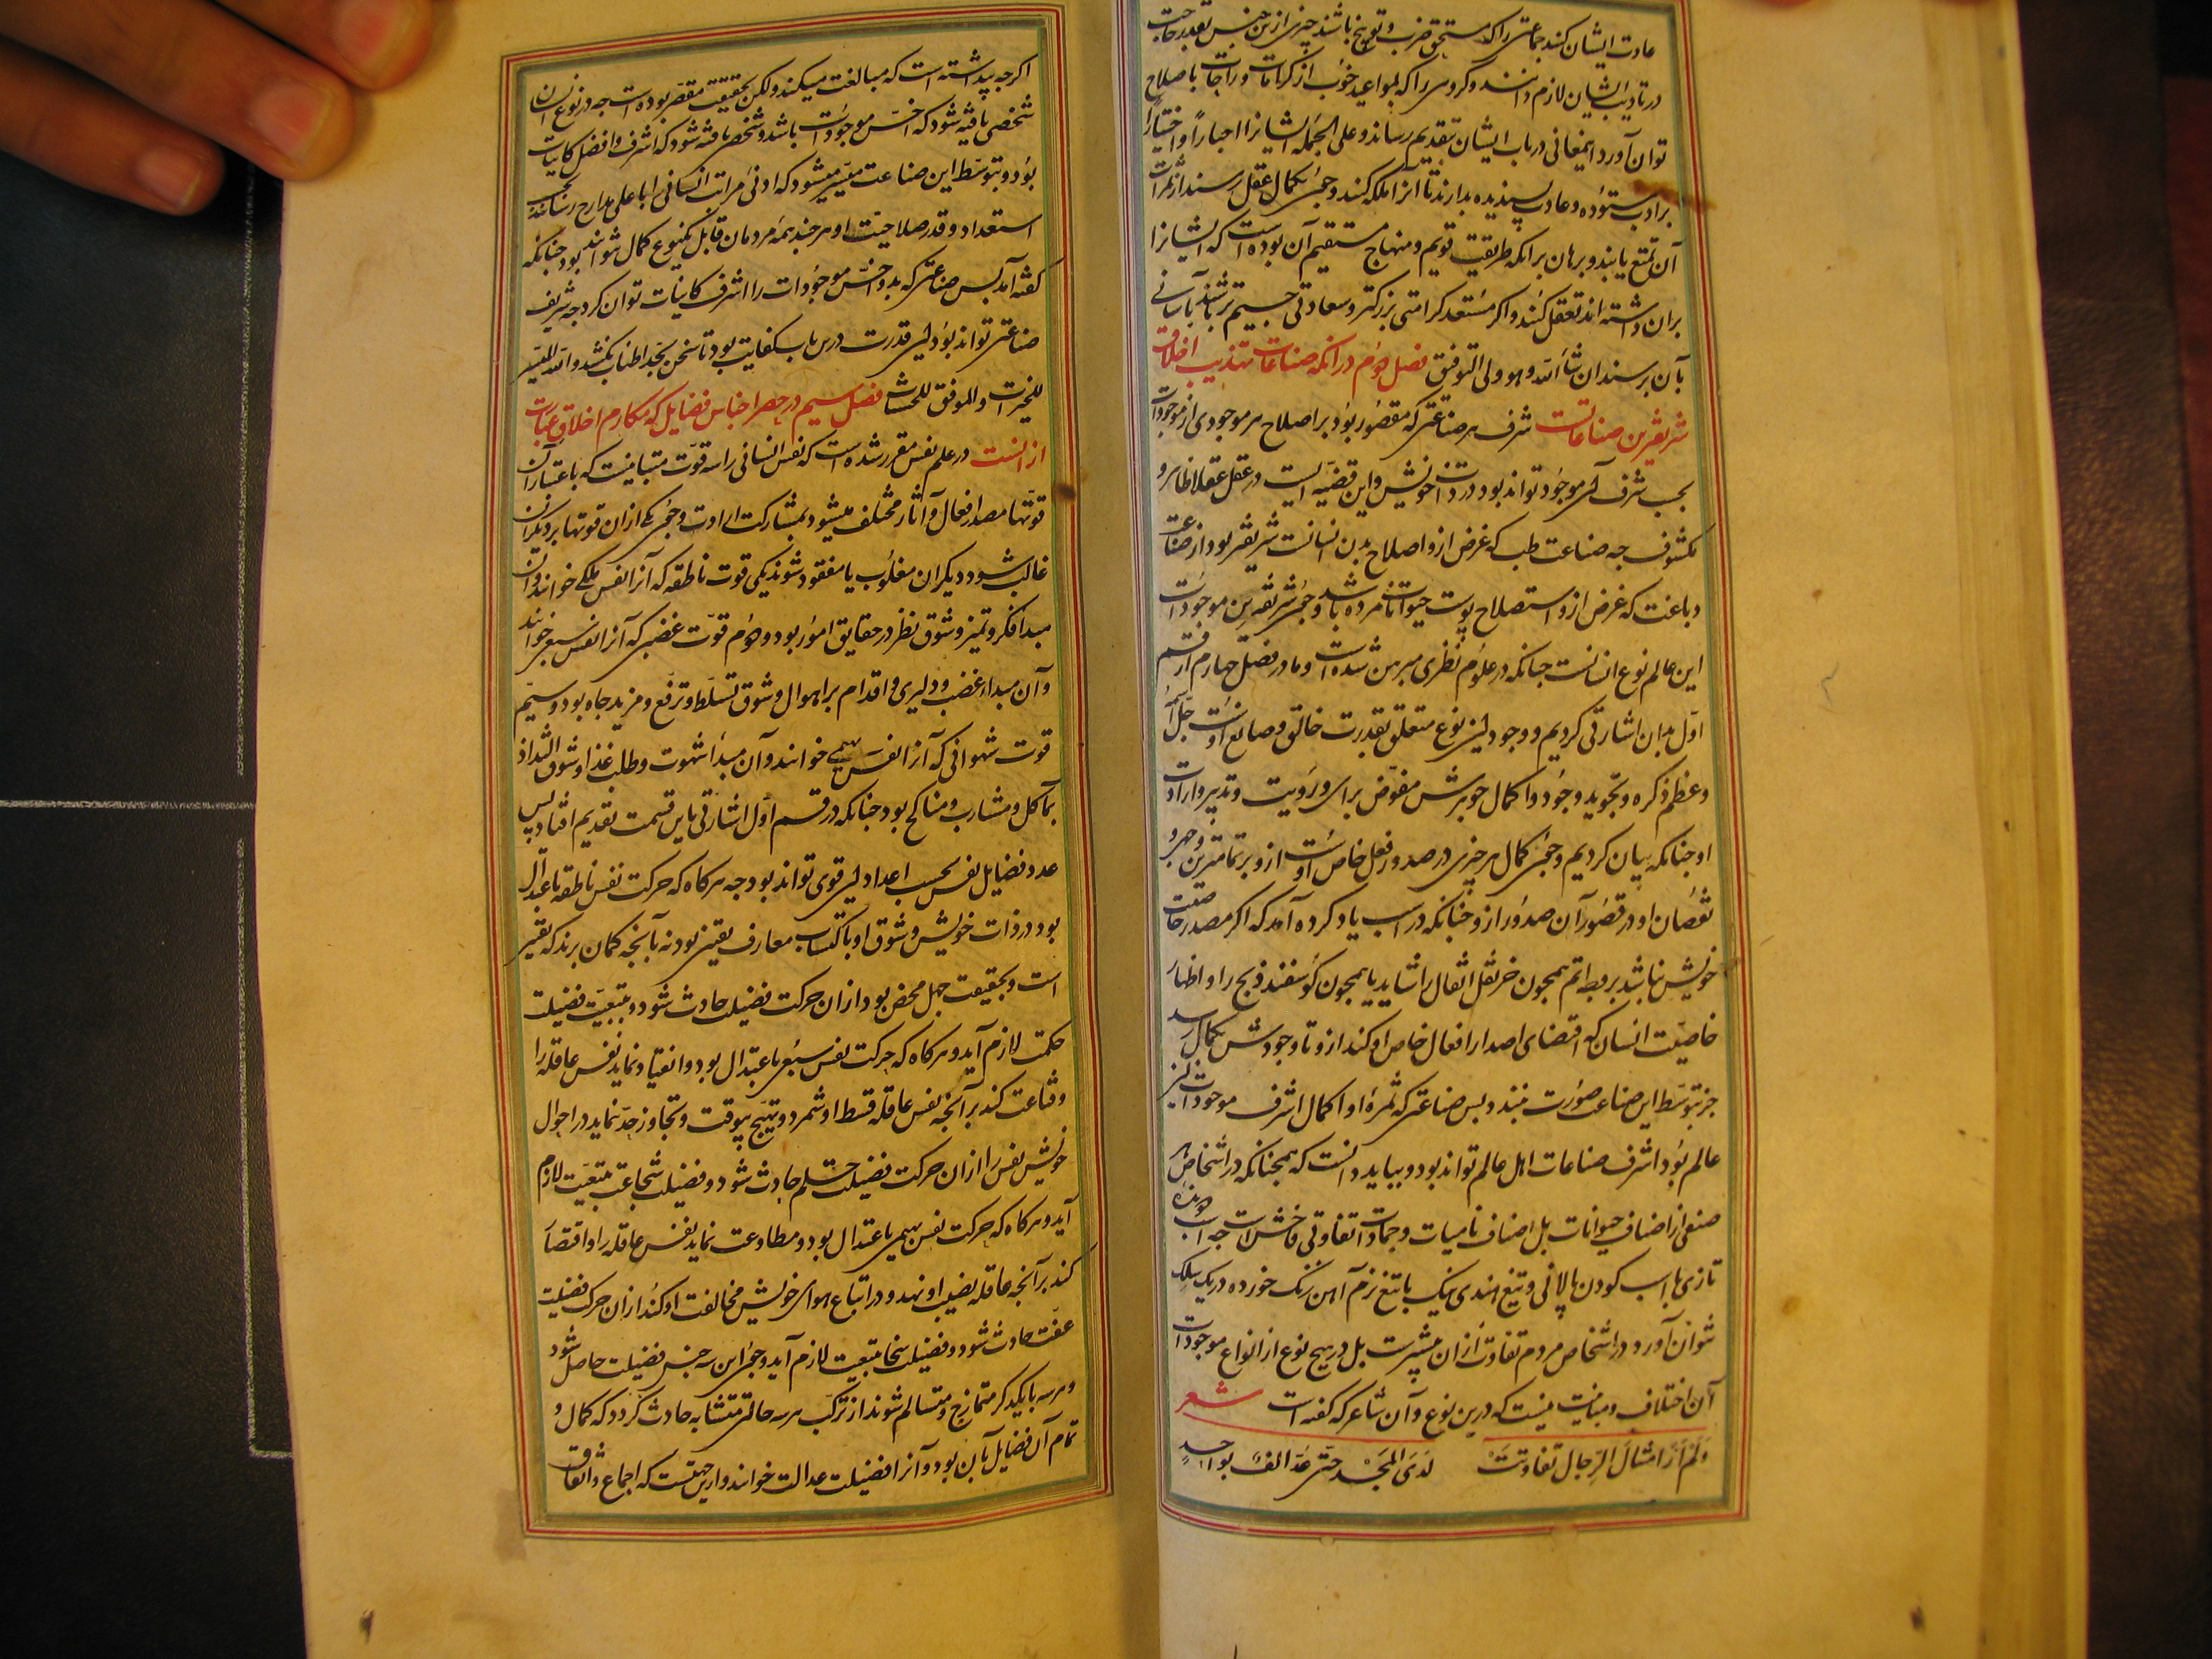 عادت ایشان کند جماعتی را که مستحق ضرب و توبیخ باشند چیزی ازین جنس بقدر حاجت
در تادیب ایشان لازم دانند و گروهی را که بمواعید خوب از کرامات و راحات باصلاح
توان آورد اینمعانی در باب ایشان بتقدیم رساند و علی الجمله ایشانرا اجباراً و اختیاراً
بر ادب ستوده و عادت پسندیده بدارند تا آنرا ملکه کنند و چون بکمال عقل رسند از ثمرات
آن تمتع یابند و برهان برانکه طریقت قویم و منهاج مستقیم آن بوده است که ایشانرا
بران داشته اند تعقل کنند و اکر مستعد کرامتی بزرکتر و سعادتی جسیم تر باشند بآسانی
بآن برسند ان شأ الله و هو ولی التوفیق فصل دوم در انکه صناعت تهذیب اخلاق
شریفترین صناعاتست شرف هر صناعتی که مقصور بود بر اصلاح هر موجودی از موجودات
بحسب شرف آن موجود تواند بود در ذات خویش و این قضیه ایست در عقل عقلا ظاهر و
مکشوف چه صناعت طب که غرض ازو اصلاح بدن انسانست شریفتر بود از صناعت
دباغت که غرض ازو استصلاح پوست حیوانات مرده باشد و چون شریفترین موجودات
این عالم نوع انسانست چنانکه در علوم نظری مبرهن شده است و ما در فصل چهارم از قسم
اول بدان اشارتی کردیم و وجود این نوع متعلق بقدرت خالق و صانع اوست جل اسمه
و عظم ذکره و تجوید وجود و اکمال جوهرش مفوض برای و رویت و تدبیر و ارادت
او چنانکه بیان کردیم و چون کمال هر چیزی در صدور فعل خاص اوست ازو بر تمامترین وجهی و
نقصان او در قصور آن صدور ازو چنانکه در اسب یاد کرده آمد که اکر مصدر خاصیت
خویش نباشد بر وجه اتم همچون خر نقل اثقال را شاید یا همچون کوسفند ذبح را و اظهار
خاصیت انسان که اقتضای اصدار افعال خاص او کند ازو تا وجودش بکمال رسد
جز بتوسط این صناعت صورت نبندد پس صناعتی که ثمره او اکمال اشرف موجودات این
عالم بود اشرف صناعات اهل عالم تواند بود و بباید دانست که همچنانکه در اشخاص هر
صنفی از اصناف حیوانات بل اصناف نامیات و جمادات تفاوتی فاحش است چه اسب دونده
تازی با اسب کودن پالانی و تیغ هندی نیک با تیغ نرم آهن زنک خورده در یک سلک
نتوان آورد در اشخاص مردم تفاوت ازان بیشترست بل در هیچ نوع از انواع موجودات
آن اختلاف و مباینت نیست که درین نوع و آن شاعر که کفته است شعر
وَلَم اَرَ امثالَ الرِجال تفاوتتْ لدَی المَجْد حتی عُدَّ الفٌ بواحدٍ
اکرچه پنداشته است که مبالغت میکند ولکن بحقیقت مقصر بوده است چه در نوع انسان
شخصی یافته شود که اخس موجودات باشد و شخصی یافته شود که اشرف و افضل کاینات
بود و بتوسط این صناعت میسر میشود که ادنی مراتب انسانی را باعلی مدارج رسانند بحسب
استعداد و قدر صلاحیت او هر چند همه مردمان قابل یکنوع کمال نتوانند بود چنانکه
کفته آمد پس صناعتی که بدو اخس موجودات را اشرف کاینات توان کرد چه شریف
صناعتی تواند بود این قدرت درین باب کفایت بود تا سخن بحد اطناب نکشد و الله المیسر
للخیرات والموفق للحسنات فصل سیم در حصر اجناس فضایل که مکارم اخلاق عبارت
از انست در علم نفس مقرر شده است که نفس انسانی را سه قوت متباینست که باعتبار آن
قوتها مصدر افعال و آثار مختلف میشود بمشارکت ارادت و چون یکی ازان قوتها بر دیکران
غالب شود دیکران مغلوب یا مفقود شوند یکی قوت ناطقه که آنرا نفس ملکی خوانند و آن
مبدا فکر و تمیز و شوق نظر در حقایق امور بود و دوم قوت غضبی که آنرا نفس سبعی خوانند
و آن مبداء غضب و دلیری و اقدام بر اهوال و شوق تسلط و ترفع و مزید جاه بود و سیم
قوت شهوانی که آنرا نفس بهیمی خوانند و آن مبدا شهوت و طلب غذا و شوق التذاذ
بمآکل و مشارب و مناکح بود چنانکه در قسم اول اشارتی باین قسمت تقدیم افتاد پس
عدد فضایل نفس بحسب اعداد این قوی تواند بود چه هرکاه که حرکت نفس ناطقه باعتدال
بود در ذات خویش و شوق او باکتساب معارف یقینی بود نه بآنچه کمان برند که یقینی
است و بحقیقت جهل محض بود ازان حرکت فضیلت حادث شود و بتبعیت فضیلت
حکمت لازم آید و هرکاه که حرکت نفس سبعی باعتدال بود و انقیاد نماید نفس عاقله را
و قناعت کند بر آنچه نفس عاقله قسط او شمرد و تهیج بیوقت و تجاوز حد ننماید در احوال
خویش نفس را ازان حرکت فضیلت حلم حادث شود و فضیلت شجاعت بتبعیت لازم
آید و هرکاه که حرکت نفس بهیمی باعتدال بود و مطاوعت نماید نفس عاقله را و اقتصار
کند بر آنچه عاقله نصیب او نهد و در اتباع هوای خویش مخالفت او نکند ازان حرکت فضیلت
عفت حادث شود و فضیلت سخا بتبعیت لازم آید و چون این سه جنس فضیلت حاصل شود
و هر سه با یکدیکر متمازج و متسالم شوند از ترکب هر سه حالتی متشابه حادث کردد که کمال و
تمام آن فضایل بآن بود و آنرا فضیلت عدالت خوانند و ازین جهتست که اجماع و اتفاق